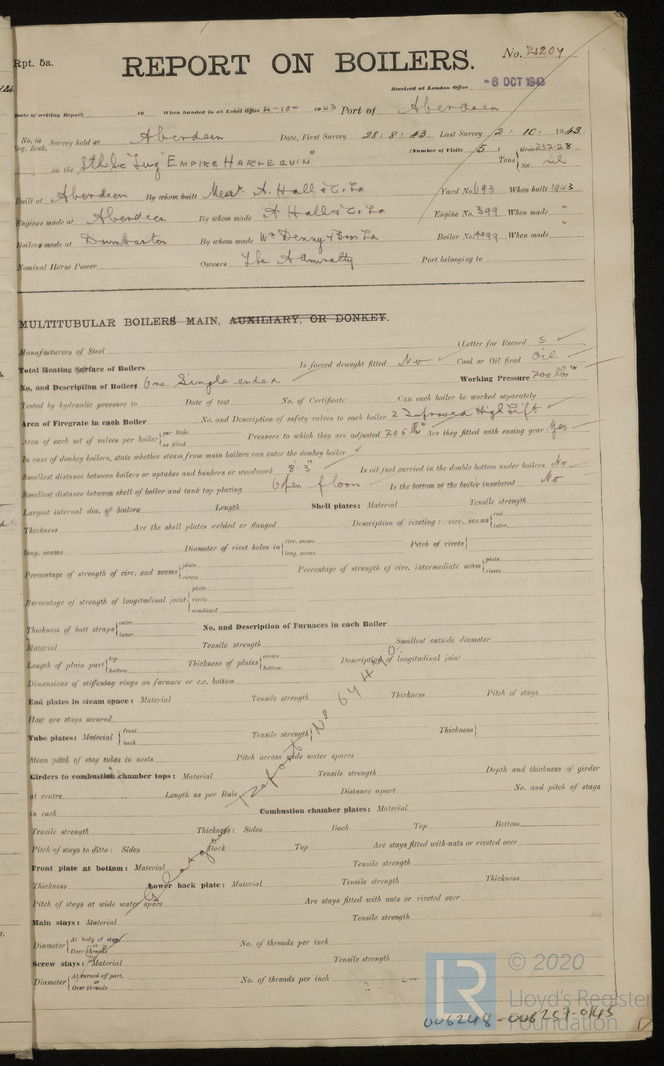 Rpt. 5a.
No. 21204
REPORT ON BOILERS.
Received at London Office -6 OCT 1943
Date of writing Report 19 When handed in at Local Office 4-10- 1943 Port of Aberdeen
No. in Reg. Book. Survey held at Aberdeen Date, First Survey 28 : 8 : 43. Last Survey 2 : 10 : 1943.
on the "EMPIRE HARLEQUIN" (Number of Visits 5) Tons Gross 252.28 Net nil
Built at Aberdeen By whom built Messrs A. Hall & Co. Ld Yard No. 693 When built 1943
Engines made at Aberdeen By whom made A Hall & Co. Ld Engine No. 399 When made "
Boilers made at Dumbarton By whom made Wm Denny & Bros Ld Boiler No. 4099 When made "
Nominal Horse Power Owners The Admiralty Port belonging to
MULTITUBULAR BOILERS MAIN, AUXILIARY, OR DONKEY.
Manufacturers of Steel (Letter for Record S)
Total Heating Surface of Boilers Is forced draught fitted No Coal or Oil fired Oil
No. and Description of Boilers One Single ended Working Pressure 200 lbs
Tested by hydraulic pressure to Date of test No. of Certificate Can each boiler be worked separately
Area of Firegrate in each Boiler No. and Description of safety valves to each boiler 2 Improved High Lift
Area of each set of valves per boiler {per Rule as fitted Pressure to which they are adjusted 205 lbs Are they fitted with easing gear Yes
In case of donkey boilers, state whether steam from main boilers can enter the donkey boiler
Smallest distance between boilers or uptakes and bunkers or woodwork 8'-3" Is oil fuel carried in the double bottom under boilers No
Smallest distance between shell of boiler and tank top plating Open floors Is the bottom of the boiler insulated No
Largest internal dia. of boilers Length Shell plates: Material Tensile strength
Thickness Are the shell plates welded or flanged Description of riveting: circ. seams {end inter.
long. seams Diameter of rivet holes in {circ. seams long. seams Pitch of rivets{
Percentage of strength of circ. end seams{plate rivets Percentage of strength of circ. intermediate seam{plate rivets
Percentage of strength of longitudinal joint{plate rivets combined
Thickness of butt straps{outer inner No. and Description of Furnaces in each Boiler
Material Tensile strength Smallest outside diameter
Length of plain part{top bottom Thickness of plates{crown bottom Description of longitudinal joint
Dimensions of stiffening rings on furnace or c.c. bottom
End plates in steam space: Material Tensile strength Thickness Pitch of stays
How are stays secured
Tube plates: Material {front back Tensile strength{ Thickness{
Mean pitch of stay tubes in nests Pitch across wide water spaces
Girders to combustion chamber tops: Material Tensile strength Depth and thickness of girder
at centre Length as per Rule Distance apart No. and pitch of stays
in each Combustion chamber plates: Material
Tensile strength Thickness: Sides Back Top Bottom
Pitch of stays to ditto: Sides Back Top Are stays fitted with nuts or riveted over
Front plate at bottom: Material Tensile strength
Thickness Lower back plate: Material Tensile strength Thickness
Pitch of stays at wide water space Are stays fitted with nuts or riveted over
Main stays: Material Tensile strength
Diameter{At body of stay, Over threads No. of threads per inch
Screw stays: Material Tensile strength
Diameter{At turned off part, Over threads No. of threads per inch
Glasgow Report No
LR © 2020
Lloyd's Register
Foundation
006248-006257-0145